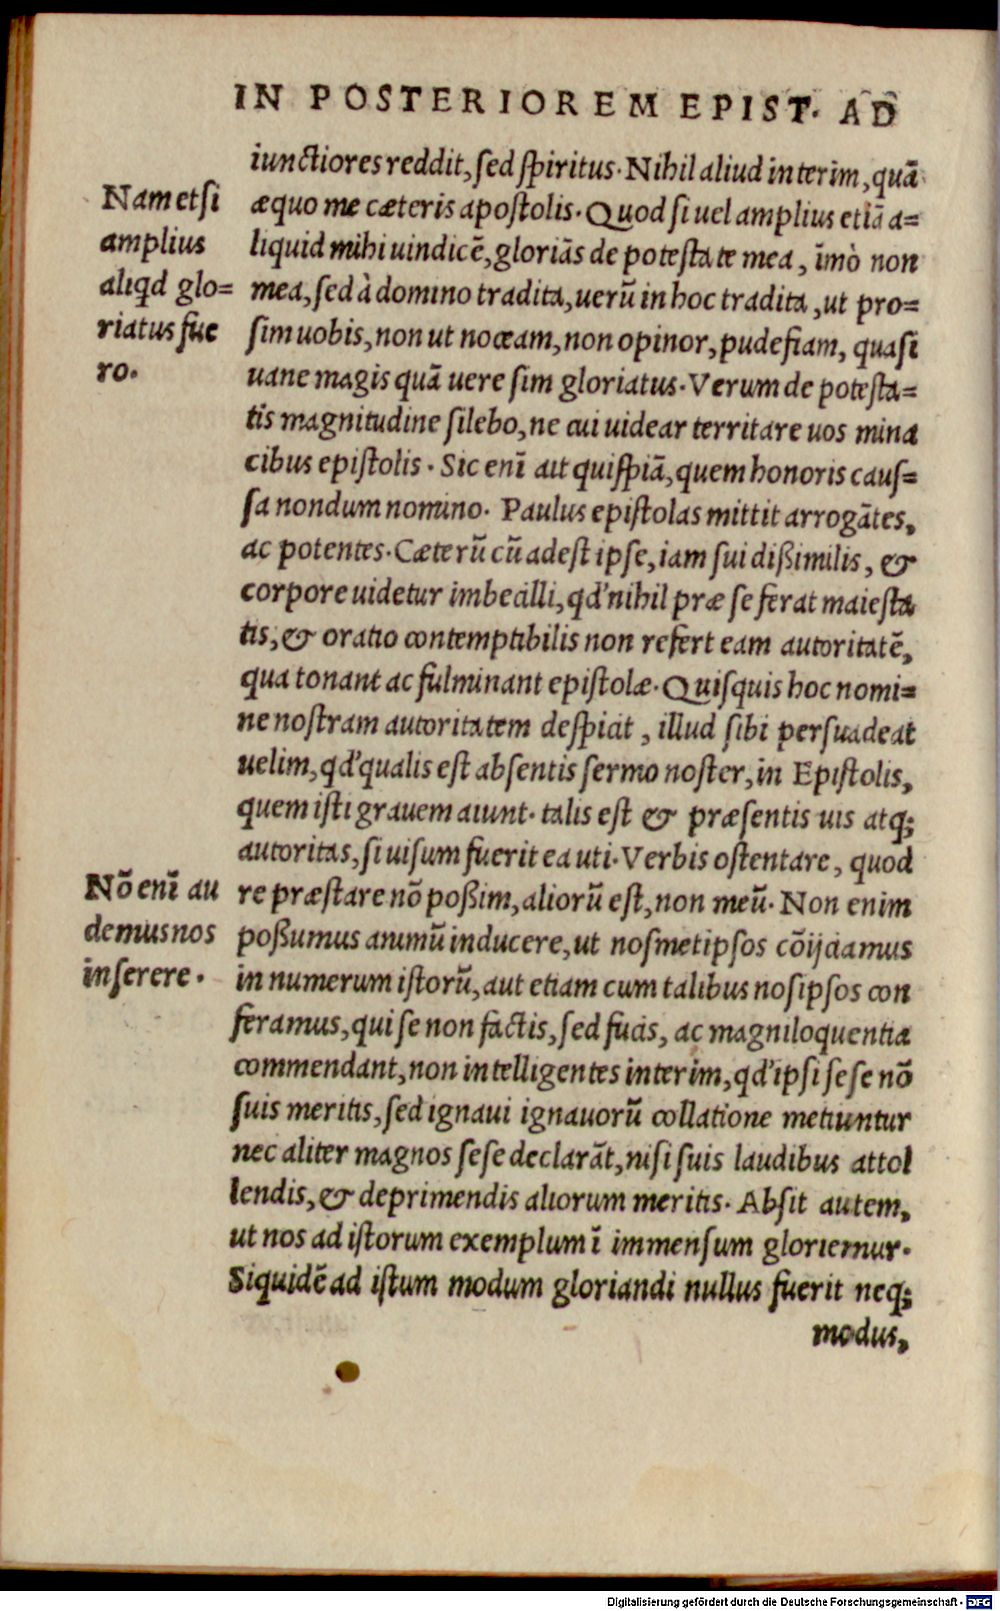 IN POSTERIOREM EPIST. AD
iunctiores reddit, sed spiritus. Nihil aliud interim, quā
æquo me cæteris apostolis. Quod si uel amplius etiā a=
liquid mihi uindicē, gloriās de potestate mea, īmò non
mea, sed à domino tradita, uerū in hoc tradita, ut pro=
sim uobis, non ut noceam, non opinor, pudefiam, quasi
uane magis quā uere sim gloriatus. Verum de potesta=
tis magnitudine silebo, ne cui uidear territare uos mina
cibus epistolis. Sic enī ait quispiā, quem honoris caus=
sa nondum nomino. Paulus epistolas mittit arrogātes,
ac potentes. Cæterū cū adest ipse, iam sui dißimilis, &
corpore uidetur imbecilli, qđ nihil præ se ferat maiesta
tis, & oratio contemptibilis non refert eam autoritatē,
qua tonant ac fulminant epistolæ. Quisquis hoc nomi=
ne nostram autoritatem despicit, illud sibi persuadeat
uelim, qđ qualis est absentis sermo noster, in Epistolis,
quem isti grauem aiunt. talis est & præsentis uis atq;
autoritas, si uisum fuerit ea uti. Verbis ostentare, quod
re præstare nō poßim, aliorū est, non meū. Non enim
poßumus animū inducere, ut nosmetipsos cōijciamus
in numerum istorū, aut etiam cum talibus nosipsos con
feramus, qui se non factis, sed fucis, ac magniloquentia
commendant, non intelligentes interim, qđ ipsi sese nō
suis meritis, sed ignaui ignauorū collatione metiuntur
nec aliter magnos sese declarāt, nisi suis laudibus attol
lendis, & deprimendis aliorum meritis. Absit autem,
ut nos ad istorum exemplum ī immensum gloriemur.
Siquidē ad istum modum gloriandi nullus fuerit neq;
modus,
Nam etsi
amplius
aliqd glo=
riatus fue
ro.
Nō enī au
demus nos
inserere.
Digitalisierung gefördert durch die Deutsche Forschungsgemeinschaft - DFG